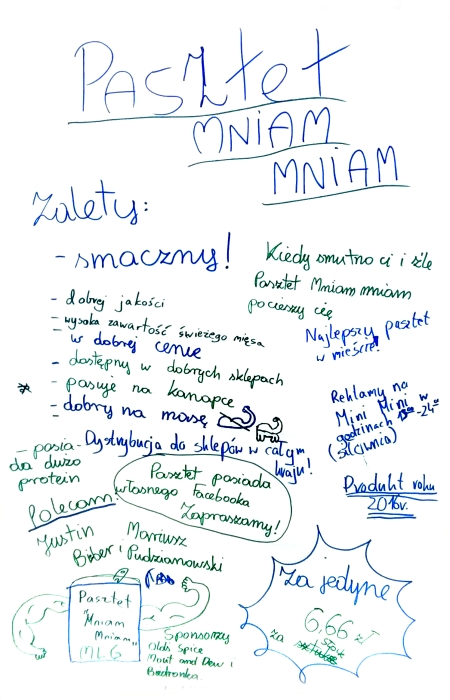 Pasztet
MNIAM
MNIAM
Zalety:
- smaczny!
- dobrej jakości
- wysoka zawartość świeżego mięsa
- w dobrej cenie
- dostępny w dobrych sklepach
* - pasuje na kanapce
- dobry na masę
- posia-
da dużo
protein
Dystrybucja do sklepów w całym
kraju!
Kiedy smutno ci i źle
Pasztet Mniam mniam
pocieszy cię
Najlepszy pasztet
w mieście!
Reklamy na
Mini Mini w
godzinach -24°°
(siłownia)
Produkt roku
2016r.
Pasztet posiada
własnego Facebooka
Zapraszamy!
Polecam:
Justin Mariusz
Biber i Pudzianowski
Pasztet
"Mniam
Mniam"
MLG
Sponsorzy
Olds Spice
Mout and Dew i
Biedronka
Za jedyne
6,66 zł
za